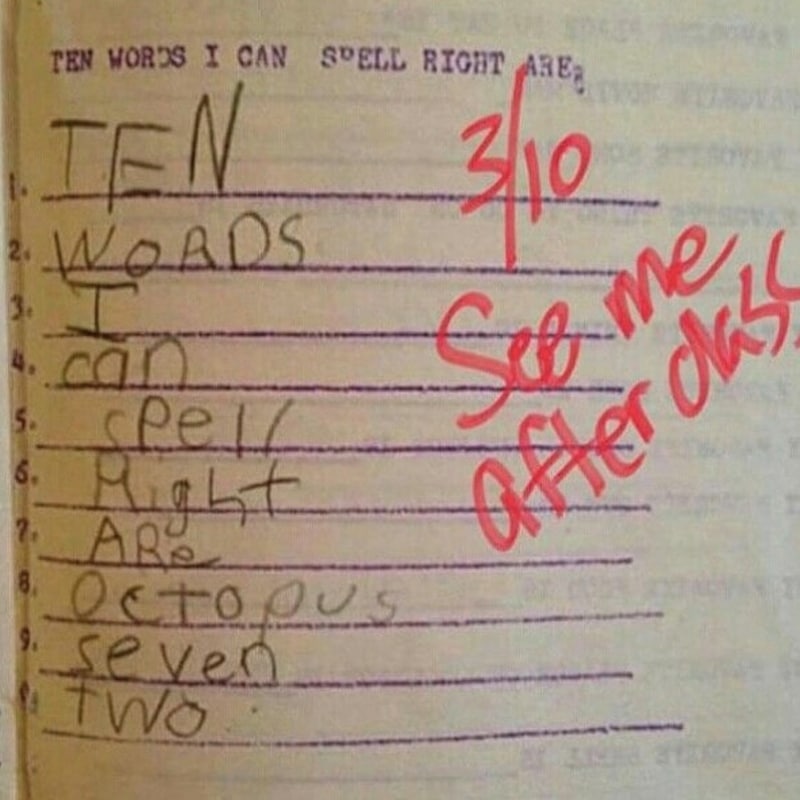 TEN WORDS I CAN SPELL RIGHT ARE:
3/10
1. TEN
2. WORDS
3. I
4. can
5. spell
6. Right
7. ARe
8. Octopus
9. seven
two
See me
after class